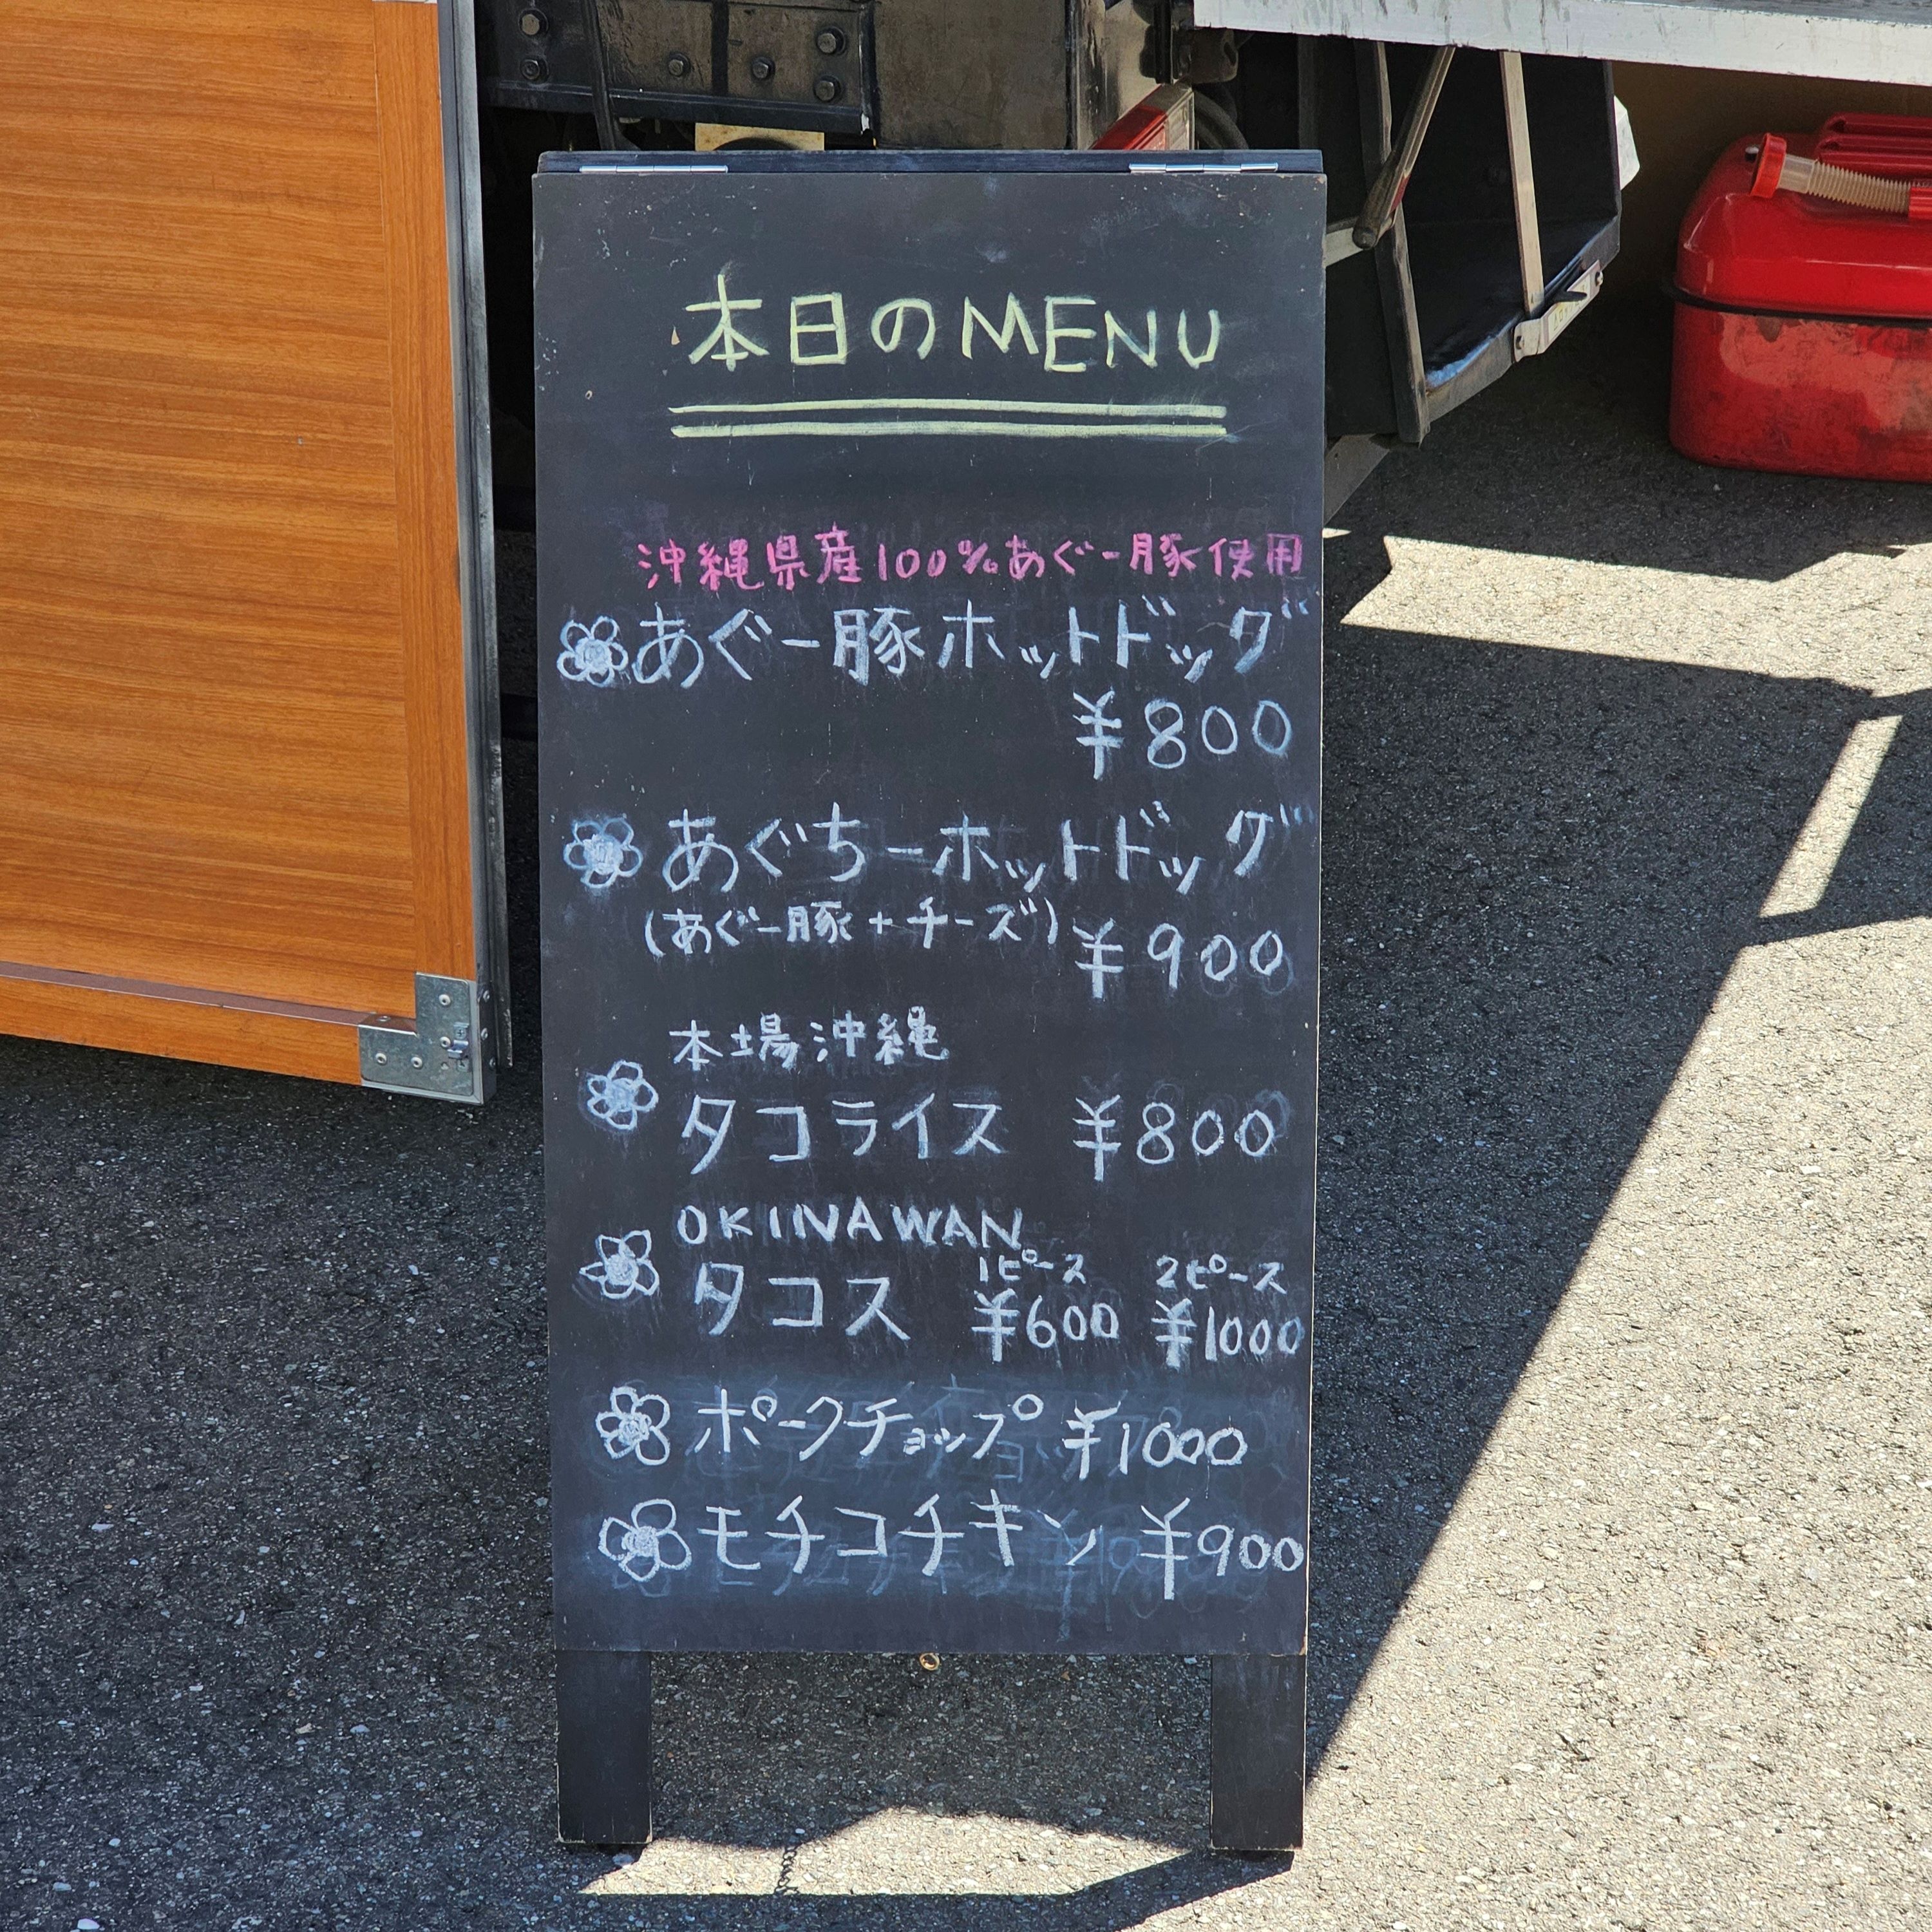 本日のMENU
沖縄県産100%あぐー豚使用
あぐー豚ホットドッグ
¥800
あぐちーホットドッグ
(あぐー豚+チーズ) ¥900
本場沖縄
タコライス ¥800
OKINAWAN
1ピース 2ピース
タコス ¥600 ¥1000
ポークチョップ ¥1000
モチコチキン ¥900